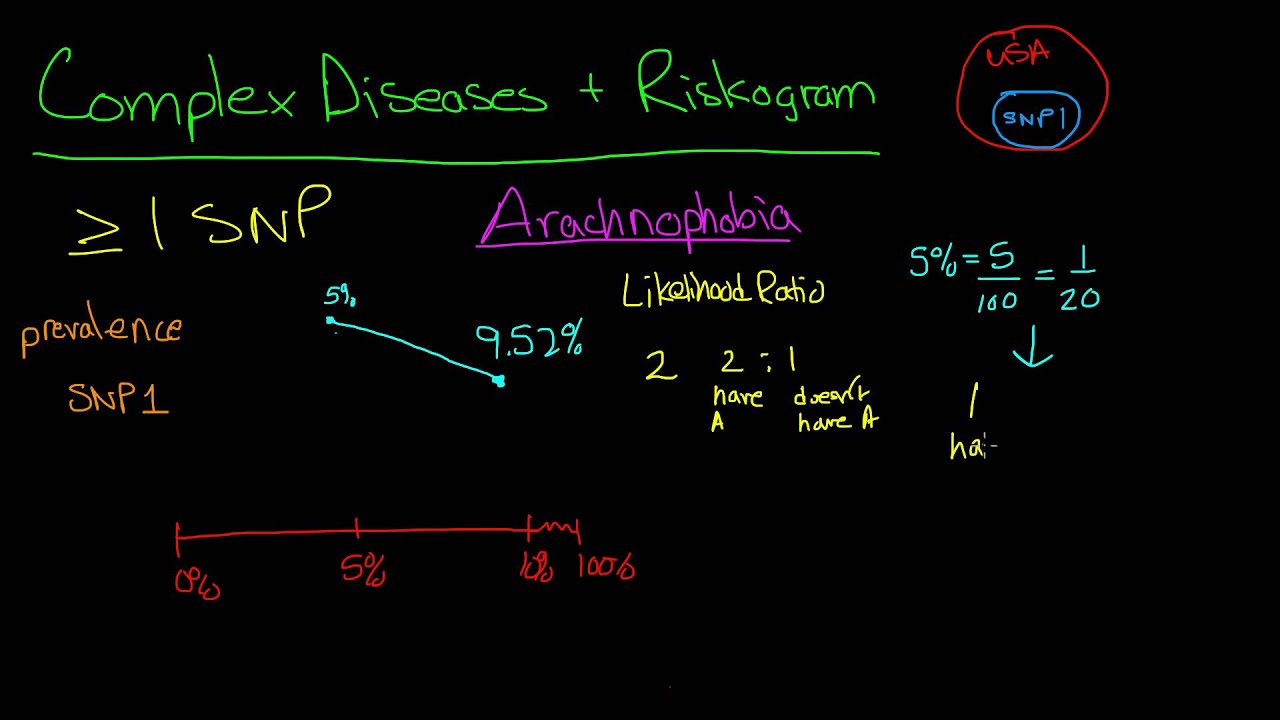 Complex Diseases + Riskogram
USA
SNP1
≥ 1 SNP
Arachnophobia
5% = 5/100 = 1/20
Likelihood Ratio
prevalence
5%
9.52%
2 2 : 1
have doesn't
A have A
SNP1
1
hai
0% 5% 10% 100%